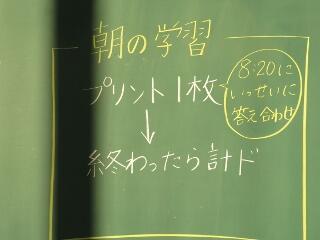 朝の学習
プリント1枚
8:20に
いっせいに
答え合わせ
↓
終わったら計ド